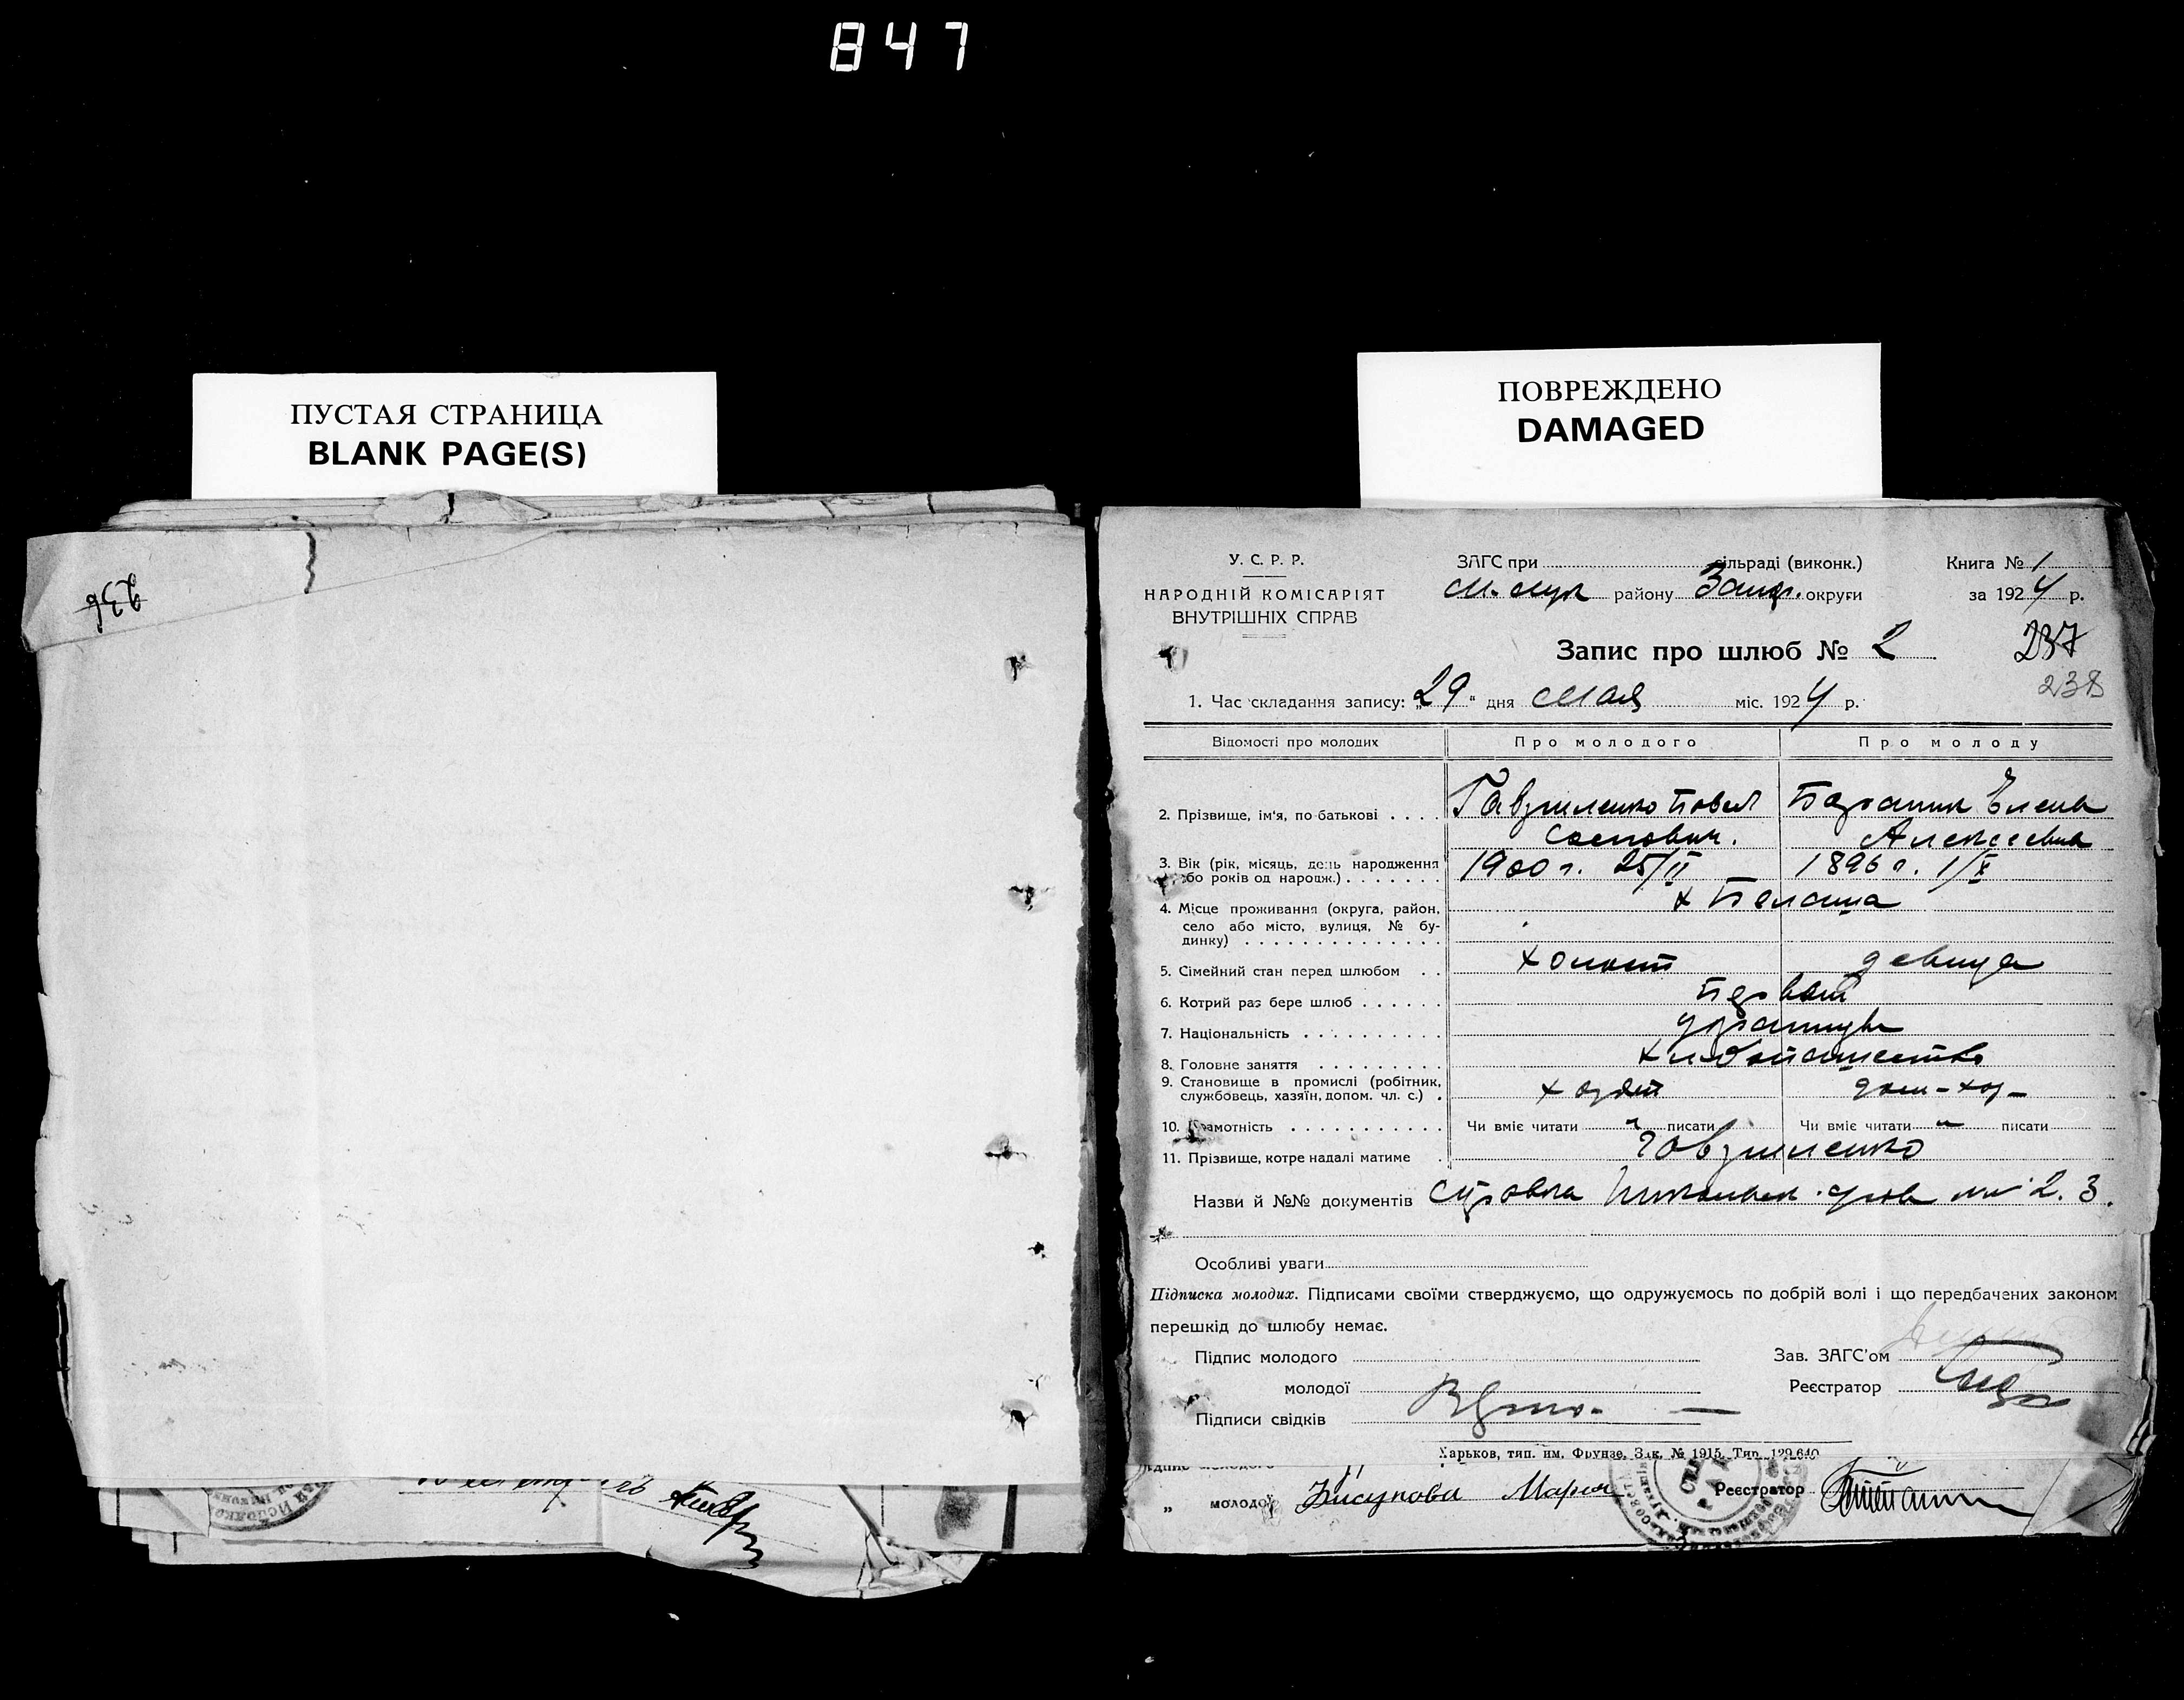 847
ПУСТАЯ СТРАНИЦА
BLANK PAGE(S)
ПОВРЕЖДЕНО
DAMAGED
236
У. С. Р. Р.
НАРОДНІЙ КОМІСАРІЯТ
ВНУТРІШНІХ СПРАВ
ЗАГС при сільраді (виконк.)
району Запор. округи
Книга № 1
за 1924 р.
Запис про шлюб № 2
237
238
1. Час складання запису: „29“ дня Мая міс. 1924 р.
Відомості про молодих Про молодого Про молоду
2. Прізвище, ім'я, по-батькові . . . . Гавриленко Павел Елена
Алексеевна
3. Вік (рік, місяць, день народження 1900 г. 25/II 1896 г. 1/X
або років од народж.) . . . . . . .
4. Місце проживання (округа, район,
село або місто, вулиця, № бу-
динку) . . . . . . . . . . . . . .
5. Сімейний стан перед шлюбом . . холост девица
6. Котрий раз бере шлюб . . . . . . Первый
7. Національність . . . . . . . . . .
8. Головне заняття . . . . . . . . . хлебопашество
9. Становище в промислі (робітник,
службовець, хазяїн, допом. чл. с.) . хозяин дом-хоз-
10. Грамотність . . . . . . . . . . . Чи вміє читати писати Чи вміє читати писати
11. Прізвище, котре надалі матиме . Гавриленко
Назви й №№ документів Справка 2. 3.
Особливі уваги
Підписка молодих. Підписами своїми стверджуємо, що одружуємось по добрій волі і що передбачених законом
перешкід до шлюбу немає.
Підпис молодого
Зав. ЗАГС'ом
молодої
Реєстратор
Підписи свідків
Харьков, тяп. им. Фрунзе, Зак. № 1915. Тир. 129.640
„ молодої Мария Реєстратор